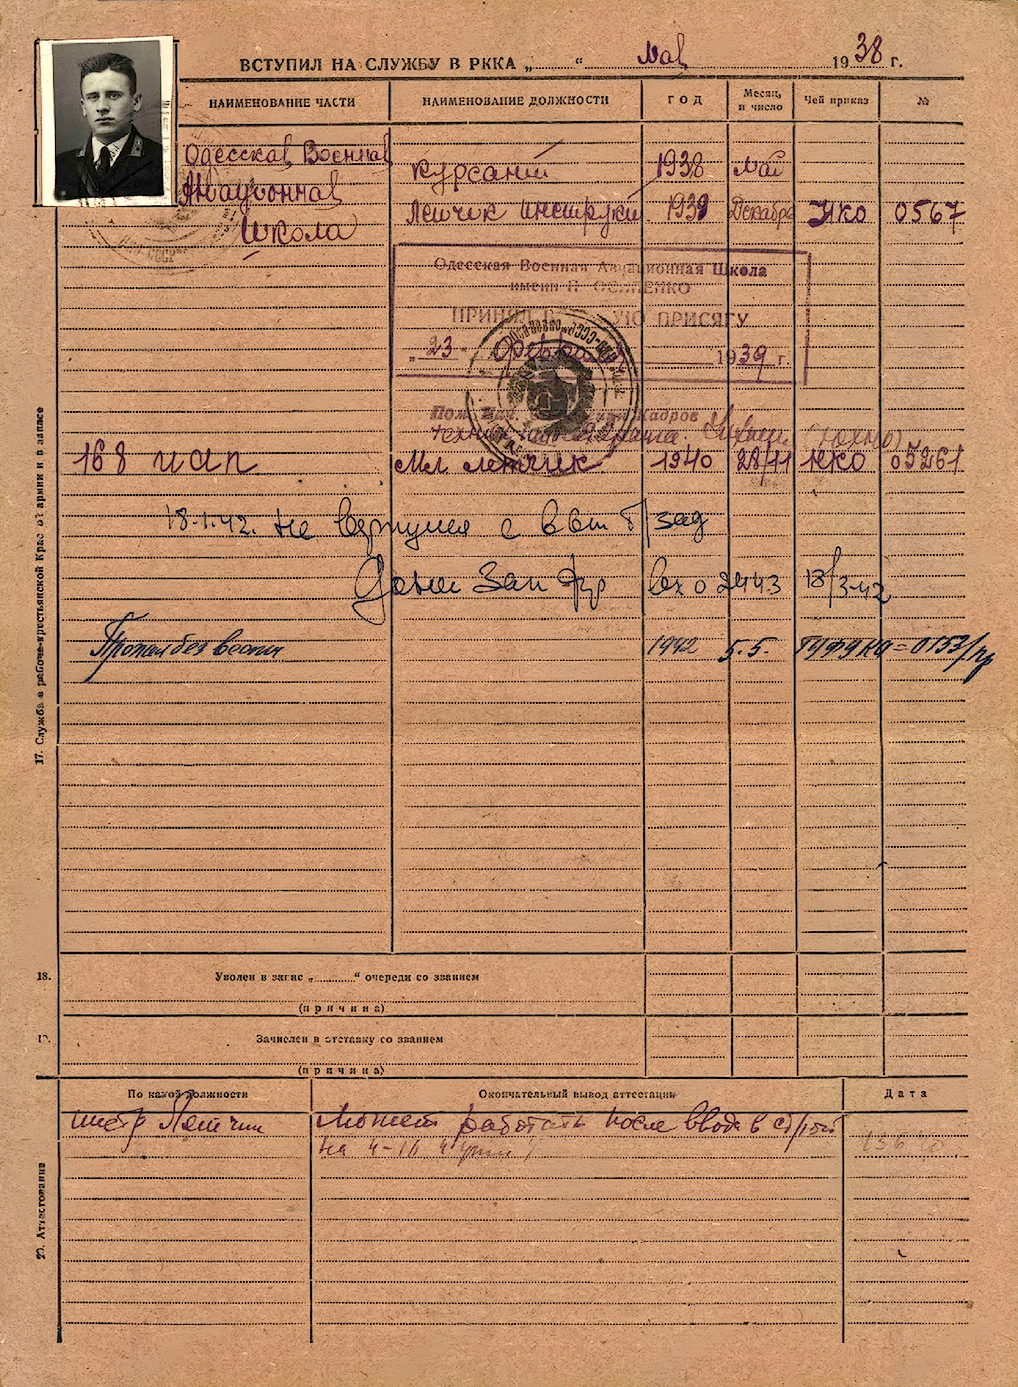 ВСТУПИЛ НА СЛУЖБУ В РККА „ “ мая 1938 г.
НАИМЕНОВАНИЕ ЧАСТИ НАИМЕНОВАНИЕ ДОЛЖНОСТИ ГОД Месяц, и число Чей приказ №
Одесская Военная Курсант 1938 май
Авиационная Летчик инструкт 1938 Декабрь НКО 0567
Школа
Одесская Военная Авиационная Школа
имени П ОСИПЕНКО
ПРИНЯЛ ПРИСЯГУ
„23 февраля 1939 г.
Пом. Нач. Кадров
168 иап Мл. летчик 1940 28/11 НКО 05261
18.1.42. не вернулся с б/зад
Зап вх 02443 18/3-42
Пропал без вести 1942 5.5. ГУФУКА=0153/пр
17. Служба в рабоче-крестьянской Красной армии и в запасе
18. Уволен в запас „ “ очереди со званием
(причина)
19. Зачислен в отставку со званием
(причина)
По какой должности Окончательный вывод аттестации Дата
инстр Летчик Может работать после ввода в строй
на
20. Аттестования